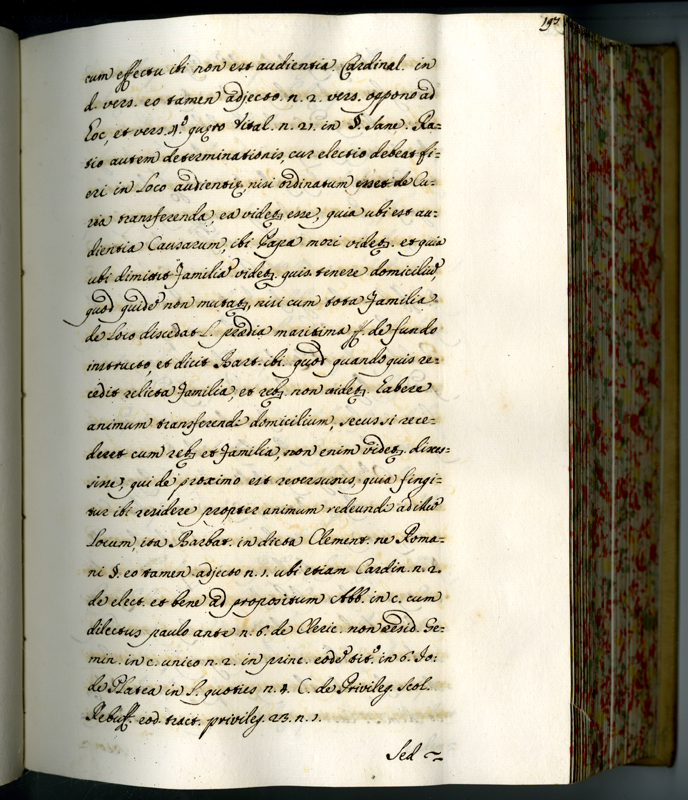 197
cum effectu ibi non est audientia. Cardinal. in
d. vers. eo tamen adjecto. n. 2. vers. oppono ad
hoc, et vers. 4.º quæro Vital. n. 21. in §. Sane. Ra=
tio autem determinationis, cur electio debeat fi=
eri in Loco audientiæ, nisi ordinatum esset de Cu=
ria transferenda, ea videtꝫ esse, quia ubi est au=
dientia Causarum, ibi Papa mori videtꝫ. et quia
ubi dimittit Familiã videtꝫ quis tenere domiciliũ
quod quidẽ non mutatꝫ, nisi cum tota Familia
de Loco discedat L. prædia maritima ff. de fundo
instructo, et dicit Bart. ibi. quod quando quis re=
cedit relicta Familia, et rebꝫ non videtꝫ habere
animum transferendi domicilium, secus si rece=
deret cum rebꝫ et Familia, non enim videtꝫ disces=
sisse, qui de proximo est reversurus, quia fingi=
tur ibi residere propter animum redeundi ad illũ
Locum, ita Barbat. in dicta Clement. ne Roma=
ni §. eo tamen adjecto n. 1. ubi etiam Cardin. n. 2.
de elect. et bene ad propositum Abb. in c. cum
dilectus paulo ante n. 6. de Cleric. non resid. Ge=
min. in c. unico n. 2. in princ. eodẽ titº. in 6. Jo:
de Platea in L. quoties n. 4. C. de Privileg. Scol.
Rebuff. eod. tract. privileg. 23. n. 1.
Sed ~